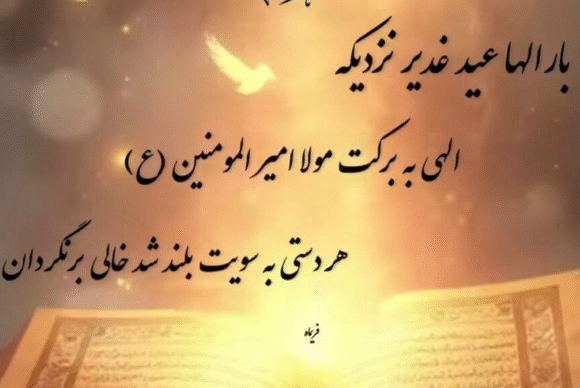 بار الها عید غدیر نزدیکه
الهی به برکت مولا امیرالمومنین (ع)
هر دستی به سویت بلند شد خالی برنگردان
فریماه